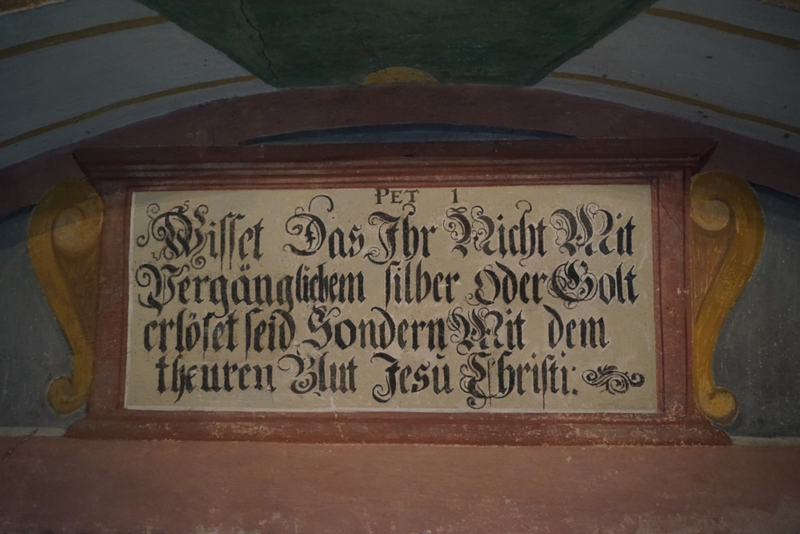 PET 1
Wisset Das Ihr Nicht Mit
Vergänglichem silber oder Golt
erlöset seid Sondern Mit dem
theuren Blut Jesu Christi: